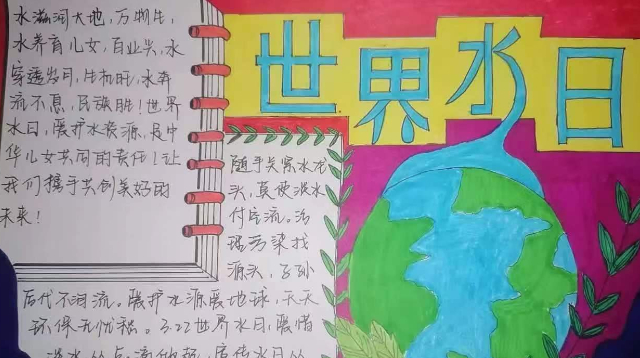 世界水日
水滋润大地,万物生,
水养育儿女,百业兴,水
穿透岁月,生机旺,水奔
流不息,民族胜!世界
水日,爱护水资源,是中
华儿女共同的责任!让
我们携手共创美好的
未来!
随手关紧水龙
头,莫使淡水
付东流。治
理污染找
源头,子孙
后代不泪流。爱护水源爱地球,天天
环保无忧愁。3.22世界水日,爱惜